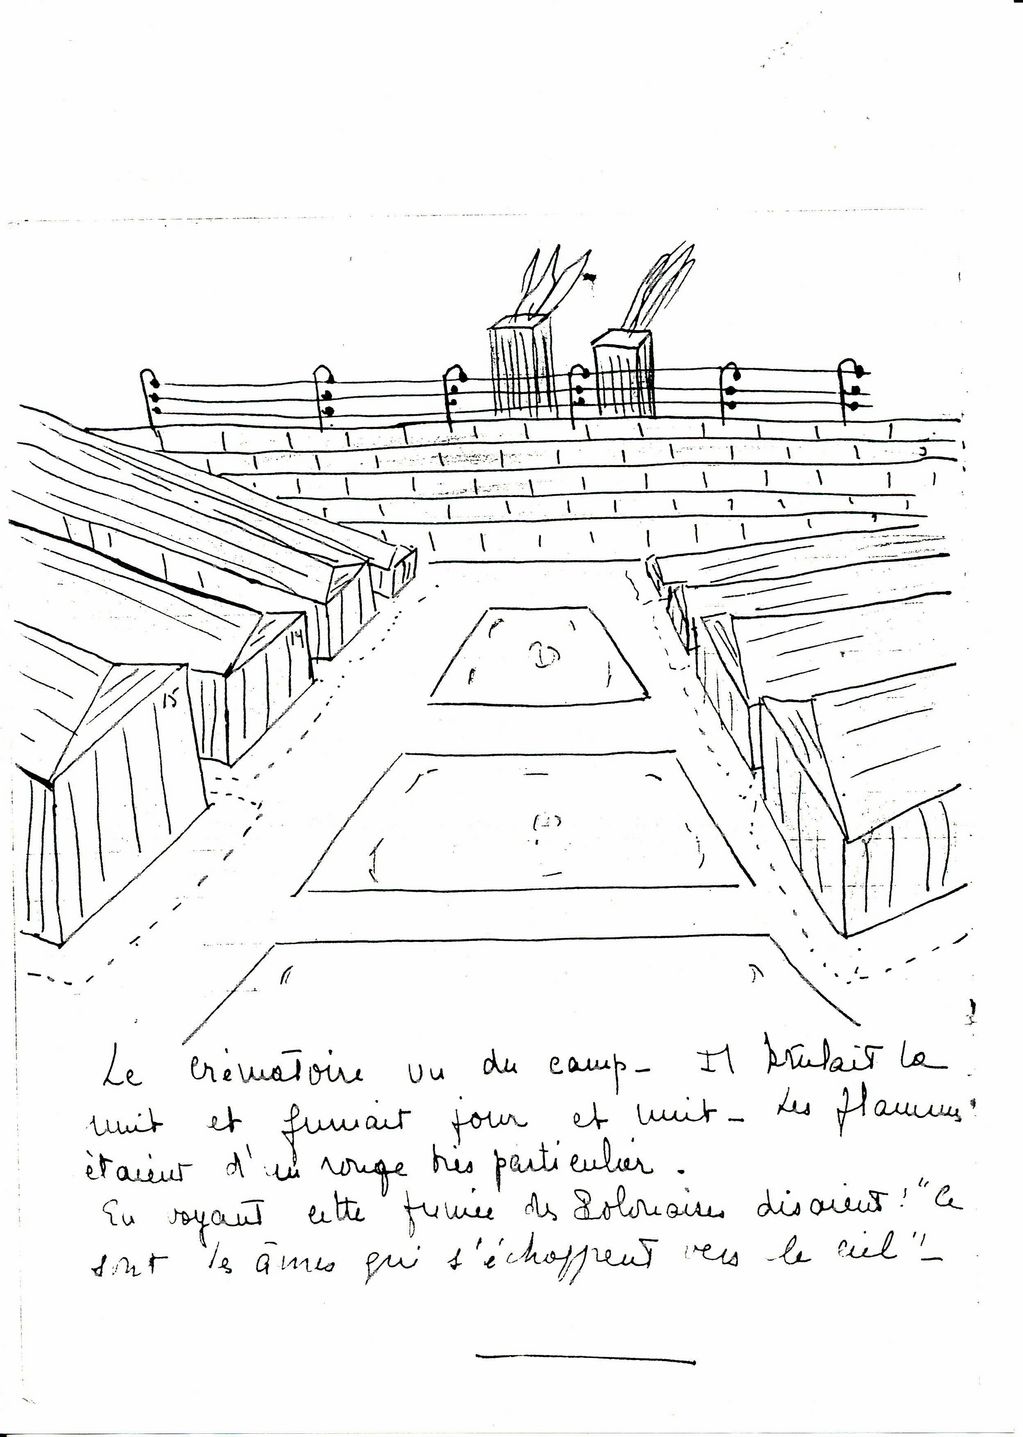 15
14
Le crématoire vu du camp - Il brulait la
nuit et fumait jour et nuit - Les flammes
étaient d'un rouge très particulier.
En voyant cette fumée des Polonaises disaient : "Ce
sont les âmes qui s'échappent vers le ciel" -